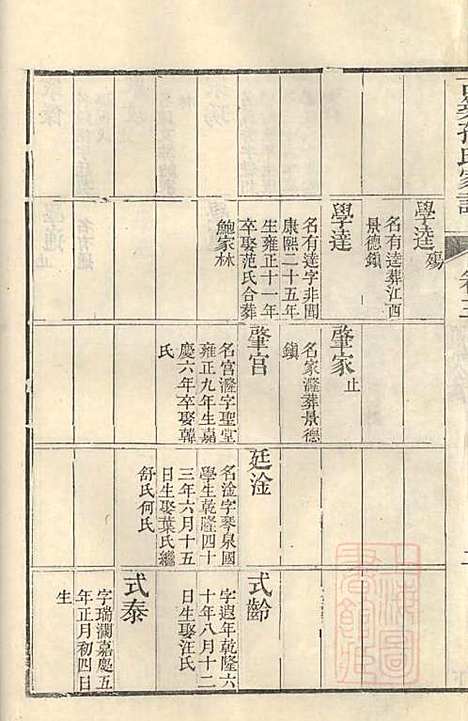 孫氏家譜
卷三
學逵 殤
名有逵葬江西
景德鎮
學達
名有達字非聞
康熙二十五年
生雍正十一年
卒娶范氏合葬
鮑家林
肇家 止
名家瀣葬景德
鎮
肇宫
名宫瀣字聖堂
雍正九年生嘉
慶六年卒娶韓
氏
廷淦
名淦字琴泉國
學生乾隆四十
三年六月十五
日生娶葉氏繼
舒氏何氏
式齡
字遐年乾隆六
十年八月十二
日生娶汪氏
式泰
字瑞瀾嘉慶五
年正月初四日
生